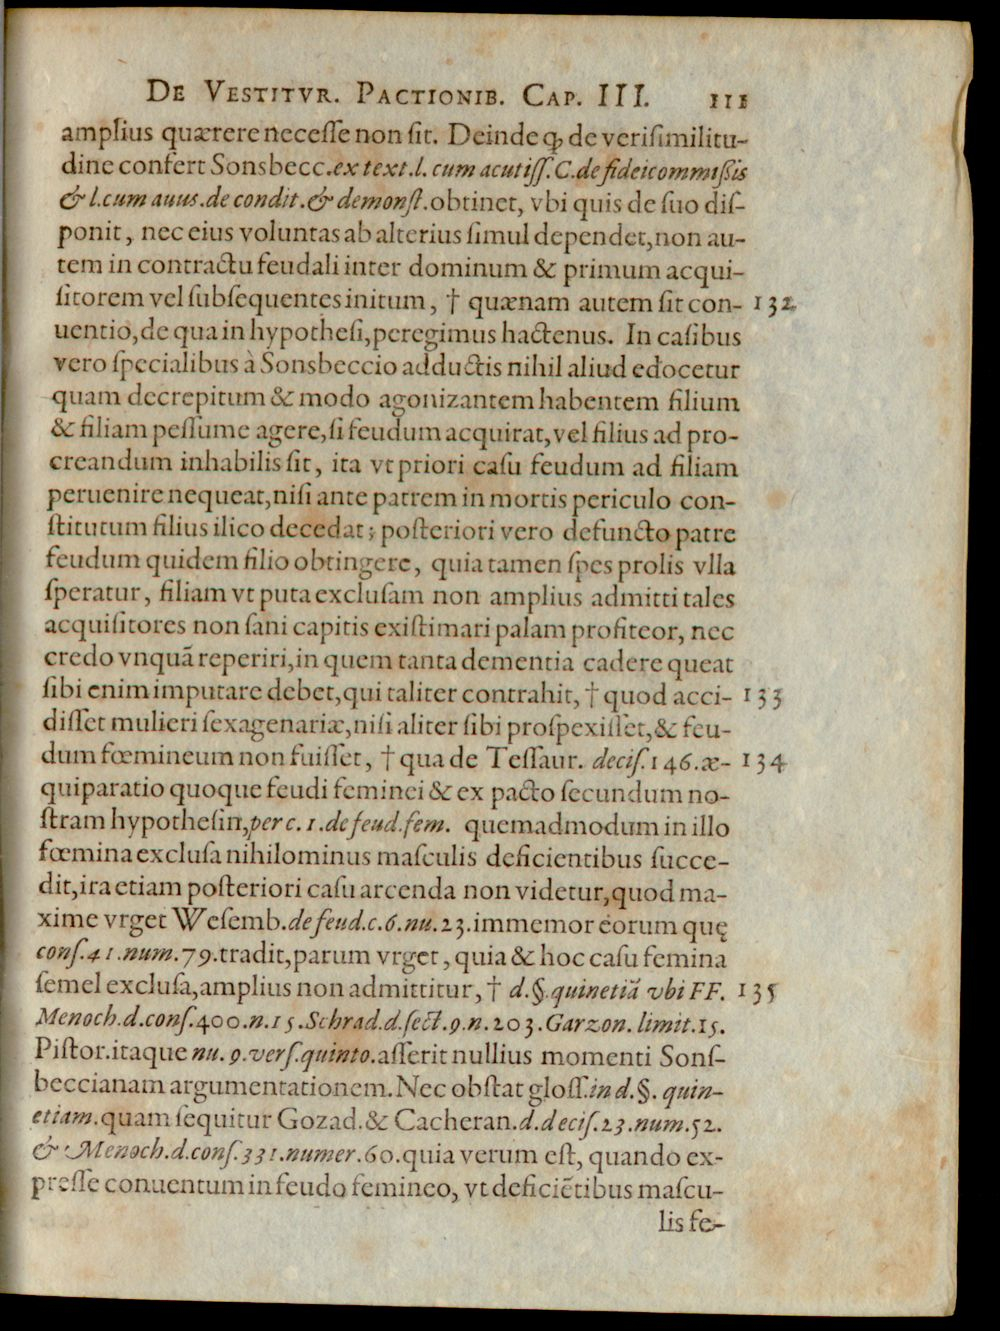 De Vestitvr. Pactionib. Cap. III. 111
amplius quærere necesse non sit. Deindeq́; de verisimilitu-
dine confert Sonsbecc. ex text. l. cum acutiss. C. de fideicommissis
& l. cum auus. de condit. & demonst. obtinet, vbi quis de suo dis-
ponit, nec eius voluntas ab alterius simul dependet, non au-
tem in contractu feudali inter dominum & primum acqui-
sitorem vel subsequentes initum, † quænam autem sit con- 132
uentio, de qua in hypothesi, peregimus hactenus. In casibus
vero specialibus à Sonsbeccio adductis nihil aliud edocetur
quam decrepitum & modo agonizantem habentem filium
& filiam pessume agere, si feudum acquirat, vel filius ad pro-
creandum inhabilis sit, ita vt priori casu feudum ad filiam
peruenire nequeat, nisi ante patrem in mortis periculo con-
stitutum filius ilico decedat; posteriori vero defuncto patre
feudum quidem filio obtingere, quia tamen spes prolis vlla
speratur, filiam vt puta exclusam non amplius admitti tales
acquisitores non sani capitis existimari palam profiteor, nec
credo vnquã reperiri, in quem tanta dementia cadere queat
sibi enim imputare debet, qui taliter contrahit, † quod acci- 133
disset mulieri sexagenariæ, nisi aliter sibi prospexisset, & feu-
dum fœmineum non fuisset, † qua de Tessaur. decis. 146. æ- 134
quiparatio quoque feudi feminei & ex pacto secundum no-
stram hypothesin, per c. 1. de feud. fem. quemadmodum in illo
fœmina exclusa nihilominus masculis deficientibus succe-
dit, ita etiam posteriori casu arcenda non videtur, quod ma-
xime vrget Wesemb. de feud. c. 6. nu. 23. immemor eorum quę
cons. 41. num. 79. tradit, parum vrget, quia & hoc casu femina
semel exclusa, amplius non admittitur, † d. §. quinetiã vbi FF. 135
Menoch. d. cons. 400. n. 15. Schrad. d. sect. 9. n. 203. Garzon. limit. 15.
Pistor. itaque nu. 9. vers. quinto. asserit nullius momenti Sons-
beccianam argumentationem. Nec obstat gloss. in d. §. quin-
etiam. quam sequitur Gozad. & Cacheran. d. decis. 23. num. 52.
& Menoch. d. cons. 331. numer. 60. quia verum est, quando ex-
presse conuentum in feudo femineo, vt deficiẽtibus mascu-
lis fe-